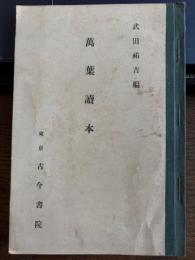 武田祐吉編
萬葉讀本
東京 古今書院